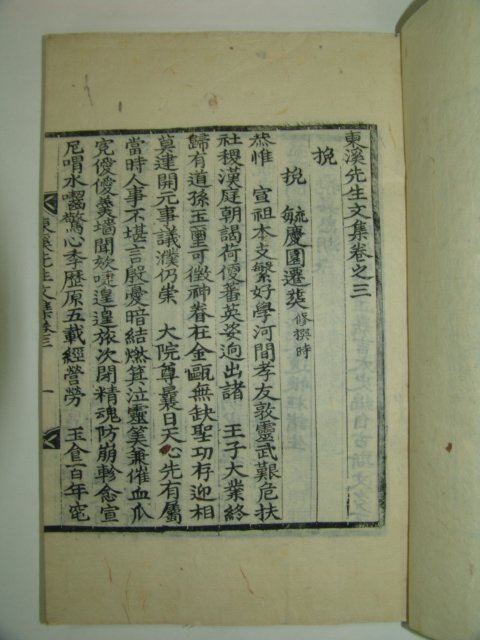 東溪先生文集卷之三
挽
挽 毓慶園遷葬 修撰時
恭惟 宣祖本支繁好學河間孝友敦靈武艱危扶
社稷漢庭朝謁荷優蕃英姿逈出諸 王子大業終
歸有道孫玉璽可徵神眷在金甌無缺聖功存迎相
莫逮開元事議濮仍崇 大院尊曩日天心先有屬
當時人事不堪言殷憂暗結燃箕泣靈筭兼催血瓜
寃僾僾羹墻聞欬唾遑遑旅次閉精魂防崩軫念宣
尼喟水齧驚心季歷原五載經營勞 玉食百年窀
東溪先生文集卷三 一